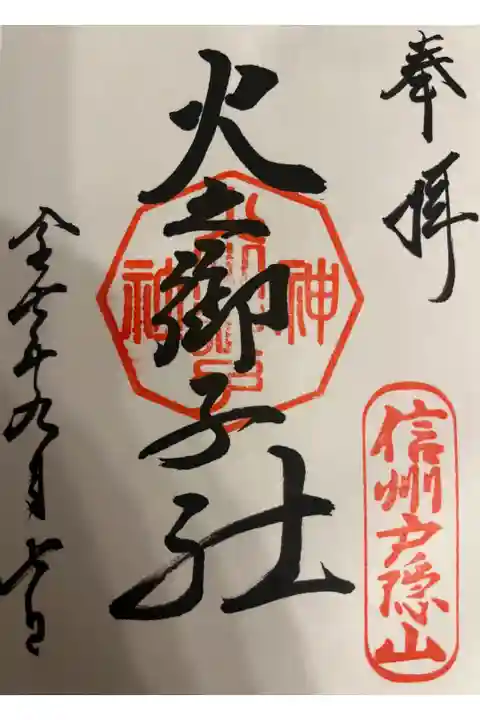 奉拝
信州戸隠山
火之御子社
神
社
年九月七日